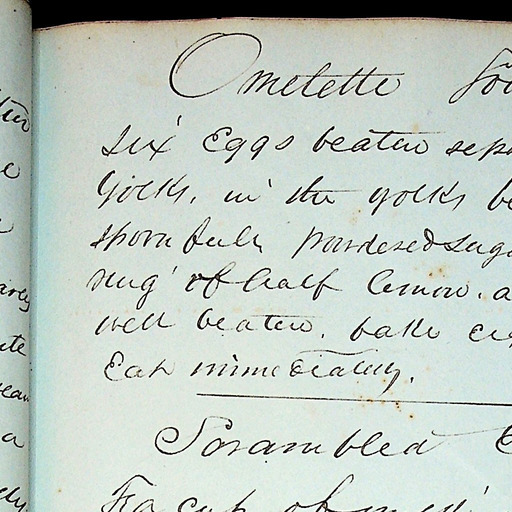 Omelette Sou
Six Eggs beaten sepa
Yolks, in the yolks be
spoon full powdered suga
ring of half lemon. a
well beaten. bake
Eat immediately.
Scrambled E
To a cup of